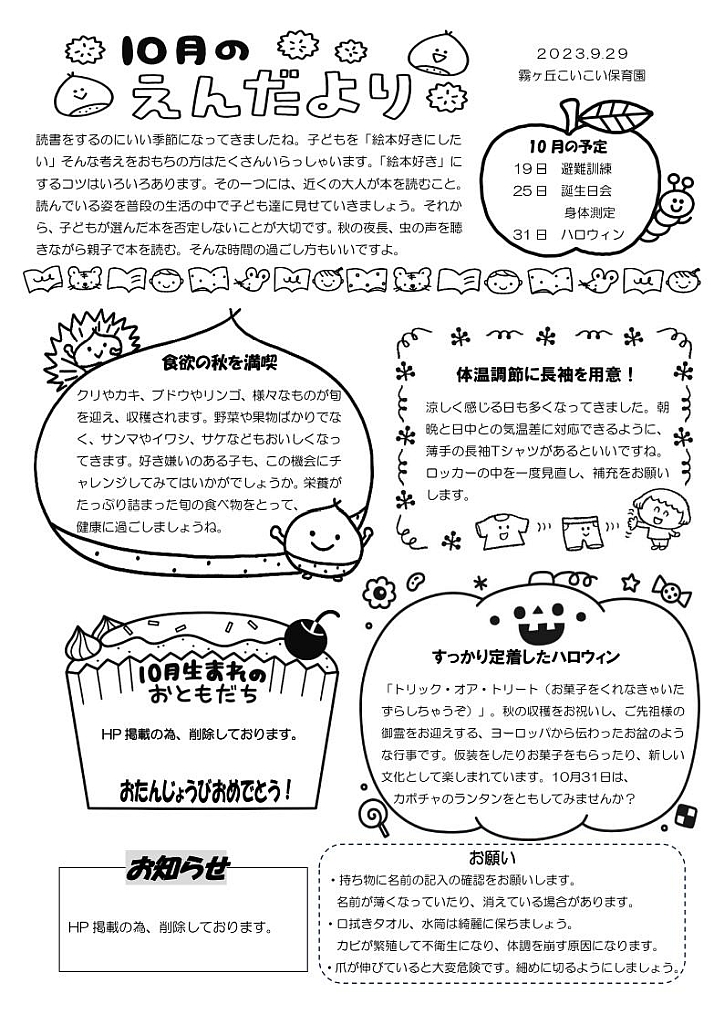 10月の
えんだより
2023.9.29
霧ヶ丘こいこい保育園
読書をするのにいい季節になってきましたね。子どもを「絵本好きにした
い」そんな考えをおもちの方はたくさんいらっしゃいます。「絵本好き」に
するコツはいろいろあります。その一つには、近くの大人が本を読むこと。
読んでいる姿を普段の生活の中で子ども達に見せていきましょう。それか
ら、子どもが選んだ本を否定しないことが大切です。秋の夜長、虫の声を聴
きながら親子で本を読む。そんな時間の過ごし方もいいですよ。
10月の予定
19日 避難訓練
25日 誕生日会
身体測定
31日 ハロウィン
食欲の秋を満喫
クリやカキ、ブドウやリンゴ、様々なものが旬
を迎え、収穫されます。野菜や果物ばかりでな
く、サンマやイワシ、サケなどもおいしくなっ
てきます。好き嫌いのある子も、この機会にチ
ャレンジしてみてはいかがでしょうか。栄養が
たっぷり詰まった旬の食べ物をとって、
健康に過ごしましょうね。
体温調節に長袖を用意！
涼しく感じる日も多くなってきました。朝
晩と日中との気温差に対応できるように、
薄手の長袖Tシャツがあるといいですね。
ロッカーの中を一度見直し、補充をお願い
します。
10月生まれの
おともだち
HP掲載の為、削除しております。
おたんじょうびおめでとう！
すっかり定着したハロウィン
「トリック・オア・トリート（お菓子をくれなきゃいた
ずらしちゃうぞ）」。秋の収穫をお祝いし、ご先祖様の
御霊をお迎えする、ヨーロッパから伝わったお盆のよう
な行事です。仮装をしたりお菓子をもらったり、新しい
文化として楽しまれています。10月31日は、
カボチャのランタンをともしてみませんか？
お知らせ
HP掲載の為、削除しております。
お願い
・持ち物に名前の記入の確認をお願いします。
名前が薄くなっていたり、消えている場合があります。
・口拭きタオル、水筒は綺麗に保ちましょう。
カビが繁殖して不衛生になり、体調を崩す原因になります。
・爪が伸びていると大変危険です。細めに切るようにしましょう。